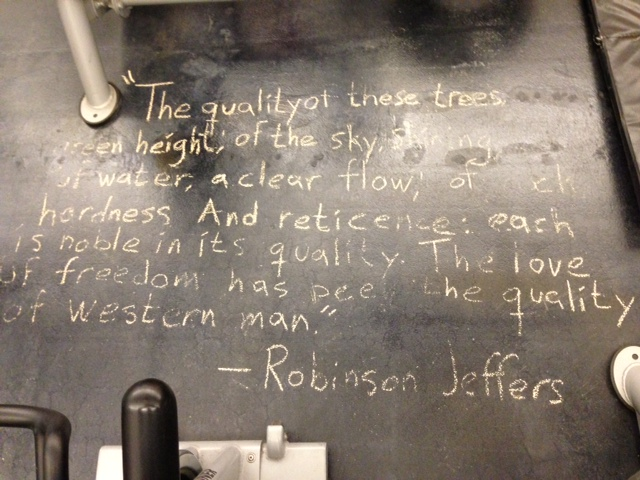 "The quality of these trees,
green height; of the sky, shining,
of water, a clear flow; of
hardness And reticence: each
is noble in its quality. The love
of freedom has been the quality
of Western man."
— Robinson Jeffers